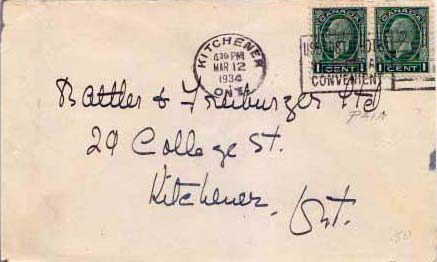 CANADA CANADA
KITCHENER
4 30 PM
MAR 12
1934
ONT.
CONVENIENT
1 CENT 1 1 CENT 1
& Freiburger Ltd
29 College St.
Kitchener, Ont.
50